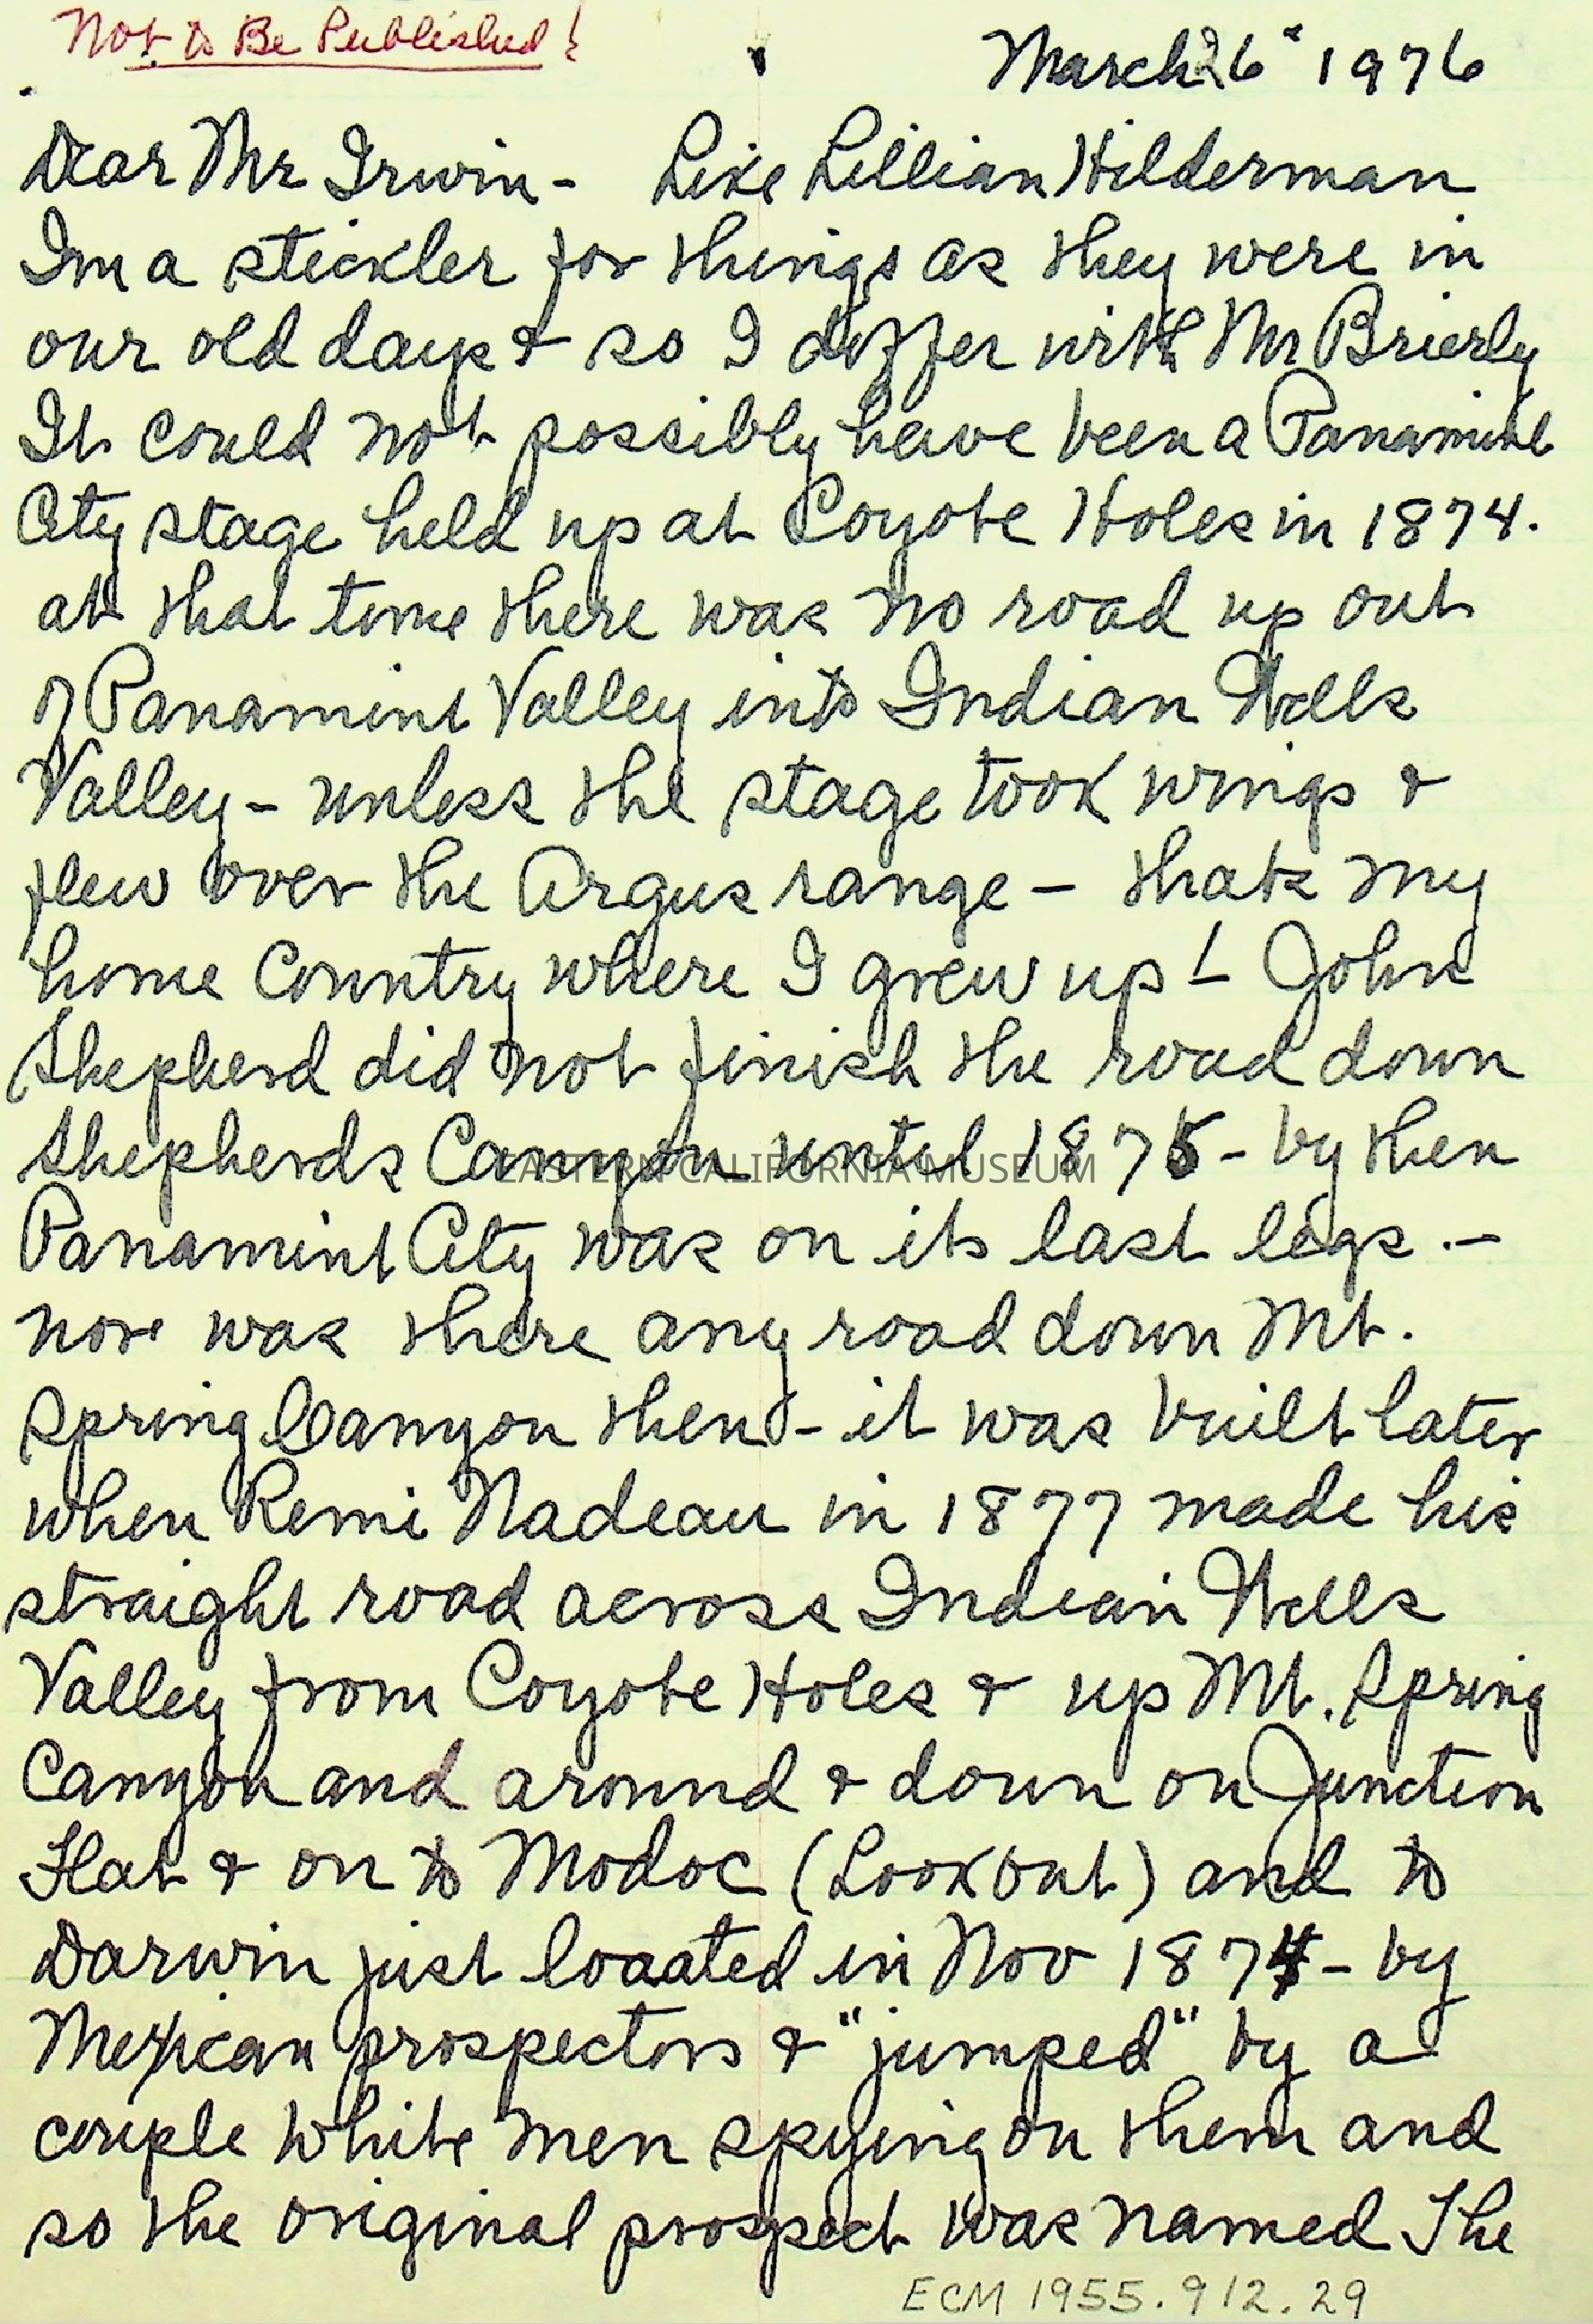 Not to Be Published!
March 26" 1976
Dear Mr Irwin - Like Lillian Hilderman
Im a stickler for things as they were in
our old days & so I differ with Mr Brierly
It could not possibly have been a Panamint
City stage held up at Coyote Holes in 1874.
at that time there was no road up out
of Panamint Valley into Indian Wells
Valley - unless the stage took wings &
flew over the Argus range - thats my
home Country where I grew up! John
Shepherd did not finish the road down
Shepherds Canyon until 1875 - by then
EASTERN CALIFORNIA MUSEUM
Panamint City was on its last legs. -
nore was there any road down Mt.
Spring Canyon then - it was built later
when Remi Nadeau in 1877 made his
straight road across Indian Wells
Valley from Coyote Holes & up Mt. Spring
Canyon and around & down on Junction
Flat & on to Modoc (Lookout) and to
Darwin just loaated in Nov 1874 - by
Mexican prospectors & "jumped" by a
couple white men spying on them and
so the original prospect was named The
ECM 1955.912.29